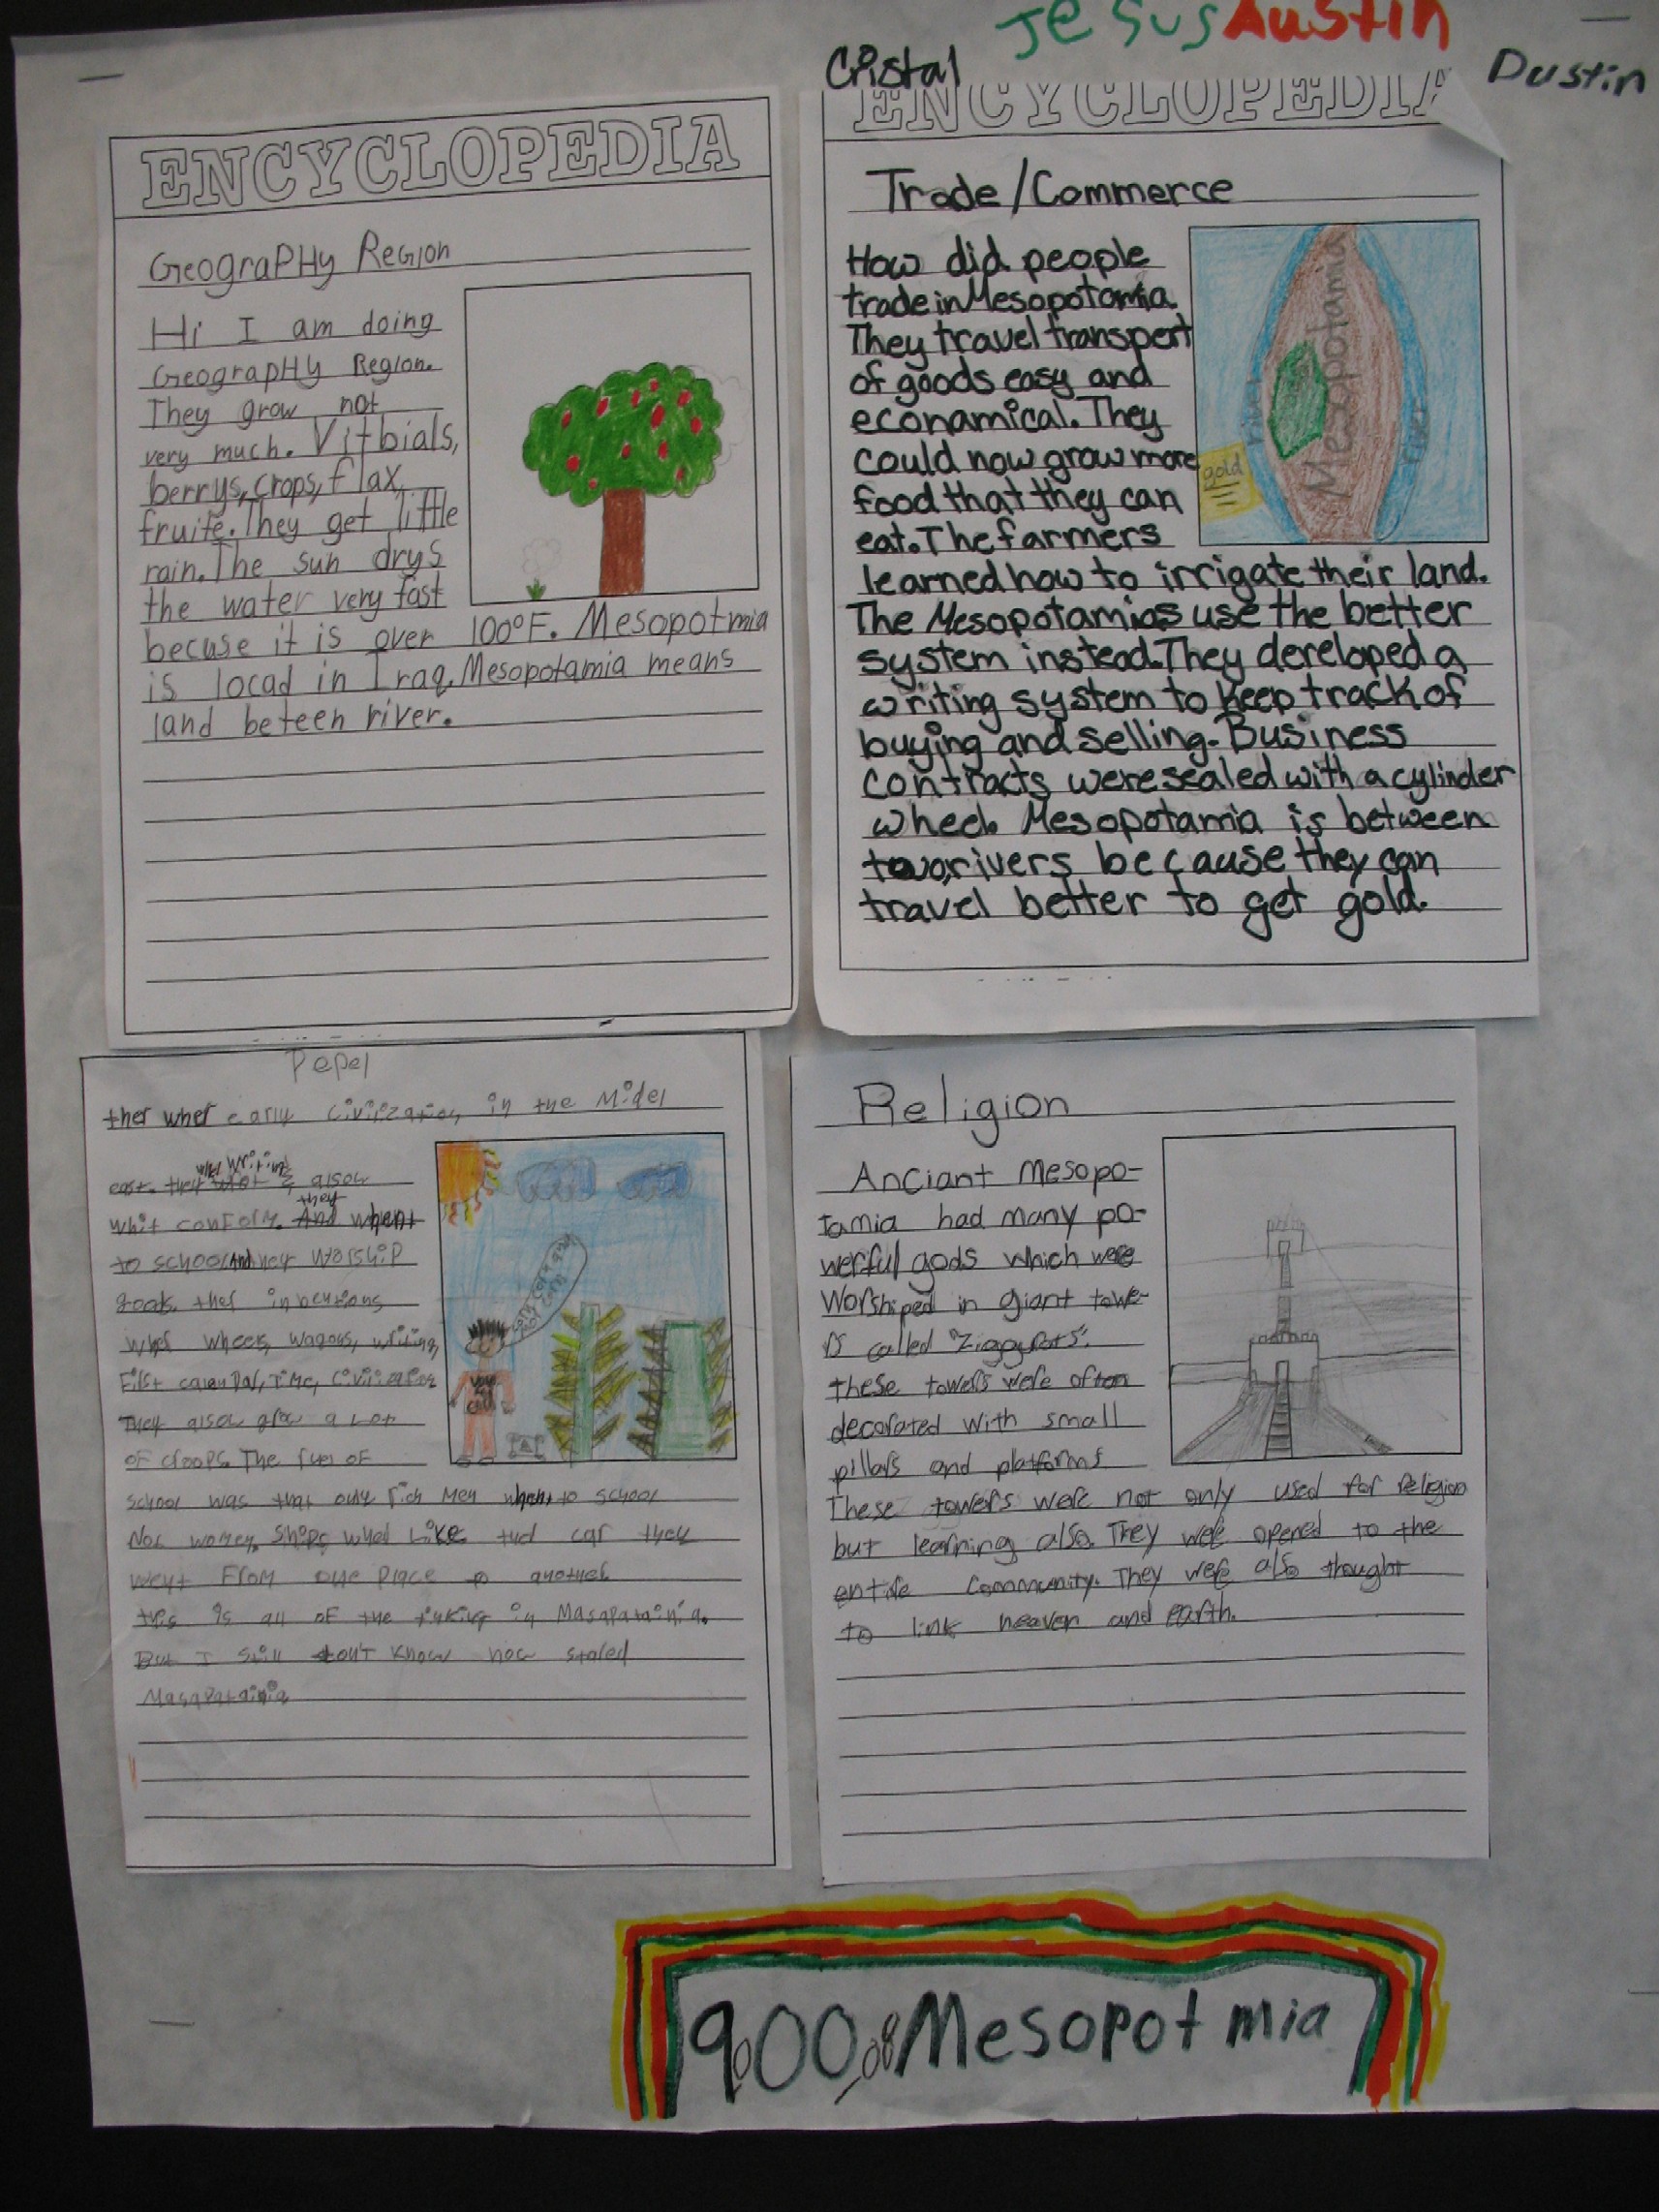 Jesus Austin
Cristal
Dustin
ENCYCLOPEDIA
GeograPHy Region
Hi I am doing
GeograpHy Region.
They grow not
very much. Vitbials,
berrys, crops, flax,
fruite. They get little
rain. The sun drys
the water very fast
becuse it is over 100°F. Mesopotmia
is locad in Iraq. Mesopotamia means
land beteen river.
ENCYCLOPEDIA
Trade/Commerce
How did people
trade in Mesopotamia.
They travel transport
of goods easy and
econamical. They
could now grow more
food that they can
eat. The farmers
learned how to irrigate their land.
The Mesopotamias use the better
system instead. They dereloped a
writing system to keep track of
buying and selling. Business
contracts were sealed with a cylinder
wheel. Mesopotamia is between
two rivers because they can
travel better to get gold.
river
Mesopotamia
river
gold
Pepel
ther wher early civilization in the Midel
east. they alsow
whit conform. And when
to school And they worship
gods. ther inbentions
wher wheels, wagons, writing,
First calendar, Time, Civilization
They alsow grow a lot
of croops. The fun of
school was that only rich men when to school
Not women. Ships wher Like ther car they
went From one place to another
this is all of the tinking in Masapatainia.
But I still don't know how stated
Masapatainia
Religion
Anciant Mesopo-
tamia had many po-
werful gods which were
Worshiped in giant towe-
rs called "Ziggurats".
these towers were often
decorated with small
pillars and platforms.
These towers were not only used for religion
but learning also. They were opened to the
entire Community. They were also thought
to link heaven and earth.
9,00 Mesopotmia